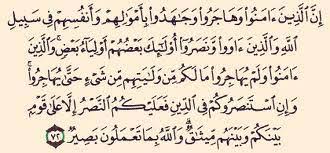 إِنَّ ٱلَّذِينَ ءَامَنُوا۟ وَهَاجَرُوا۟ وَجَٰهَدُوا۟ بِأَمْوَٰلِهِمْ وَأَنفُسِهِمْ فِى سَبِيلِ
ٱللَّهِ وَٱلَّذِينَ ءَاوَوا۟ وَّنَصَرُوٓا۟ أُو۟لَٰٓئِكَ بَعْضُهُمْ أَوْلِيَآءُ بَعْضٍ ۚ وَٱلَّذِينَ
ءَامَنُوا۟ وَلَمْ يُهَاجِرُوا۟ مَا لَكُم مِّن وَلَٰيَتِهِم مِّن شَىْءٍ حَتَّىٰ يُهَاجِرُوا۟ ۚ
وَإِنِ ٱسْتَنصَرُوكُمْ فِى ٱلدِّينِ فَعَلَيْكُمُ ٱلنَّصْرُ إِلَّا عَلَىٰ قَوْمٍۭ
بَيْنَكُمْ وَبَيْنَهُم مِّيثَٰقٌ ۗ وَٱللَّهُ بِمَا تَعْمَلُونَ بَصِيرٌ ٧٢